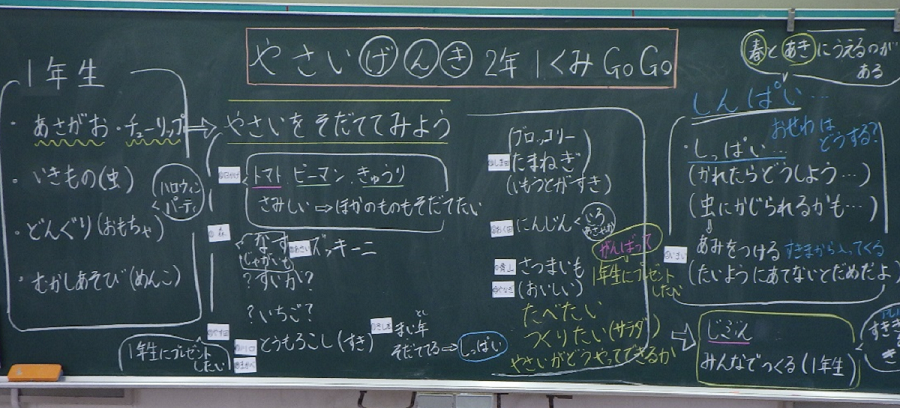 やさいげんき 2年1くみ GoGo
1年生
・あさがお・チューリップ
・いきもの(虫)
・どんぐり(おもちゃ)
・むかしあそび(めんこ)
ハロウィン
パーティ
1年生にプレゼント
したい
やさいをそだててみよう
トマト、ピーマン、きゅうり
さみしい⇒ほかのものもそだてたい
?なす
じゃがいも
ズッキーニ
?すいか?
?いちご?
とうもろこし(すき)
まい年
とし
そだててる⇒しっぱい
ブロッコリー
たまねぎ
(いもうとがすき)
にんじん
いろ
さつまいも
(おいしい)
がんばって
1年生にプレゼント
したい
たべたい
つくりたい(サラダ)
やさいがどうやってできるか
春とあきにうえるのが
ある
しんぱい…
おせわは
どうする?
・しっぱい…
(かれたらどうしよう…)
(虫にかじられるかも…)
あみをつける すきまから入ってくる
(たいようにあてないとだめだよ)
じぶん
みんなでつくる(1年生)